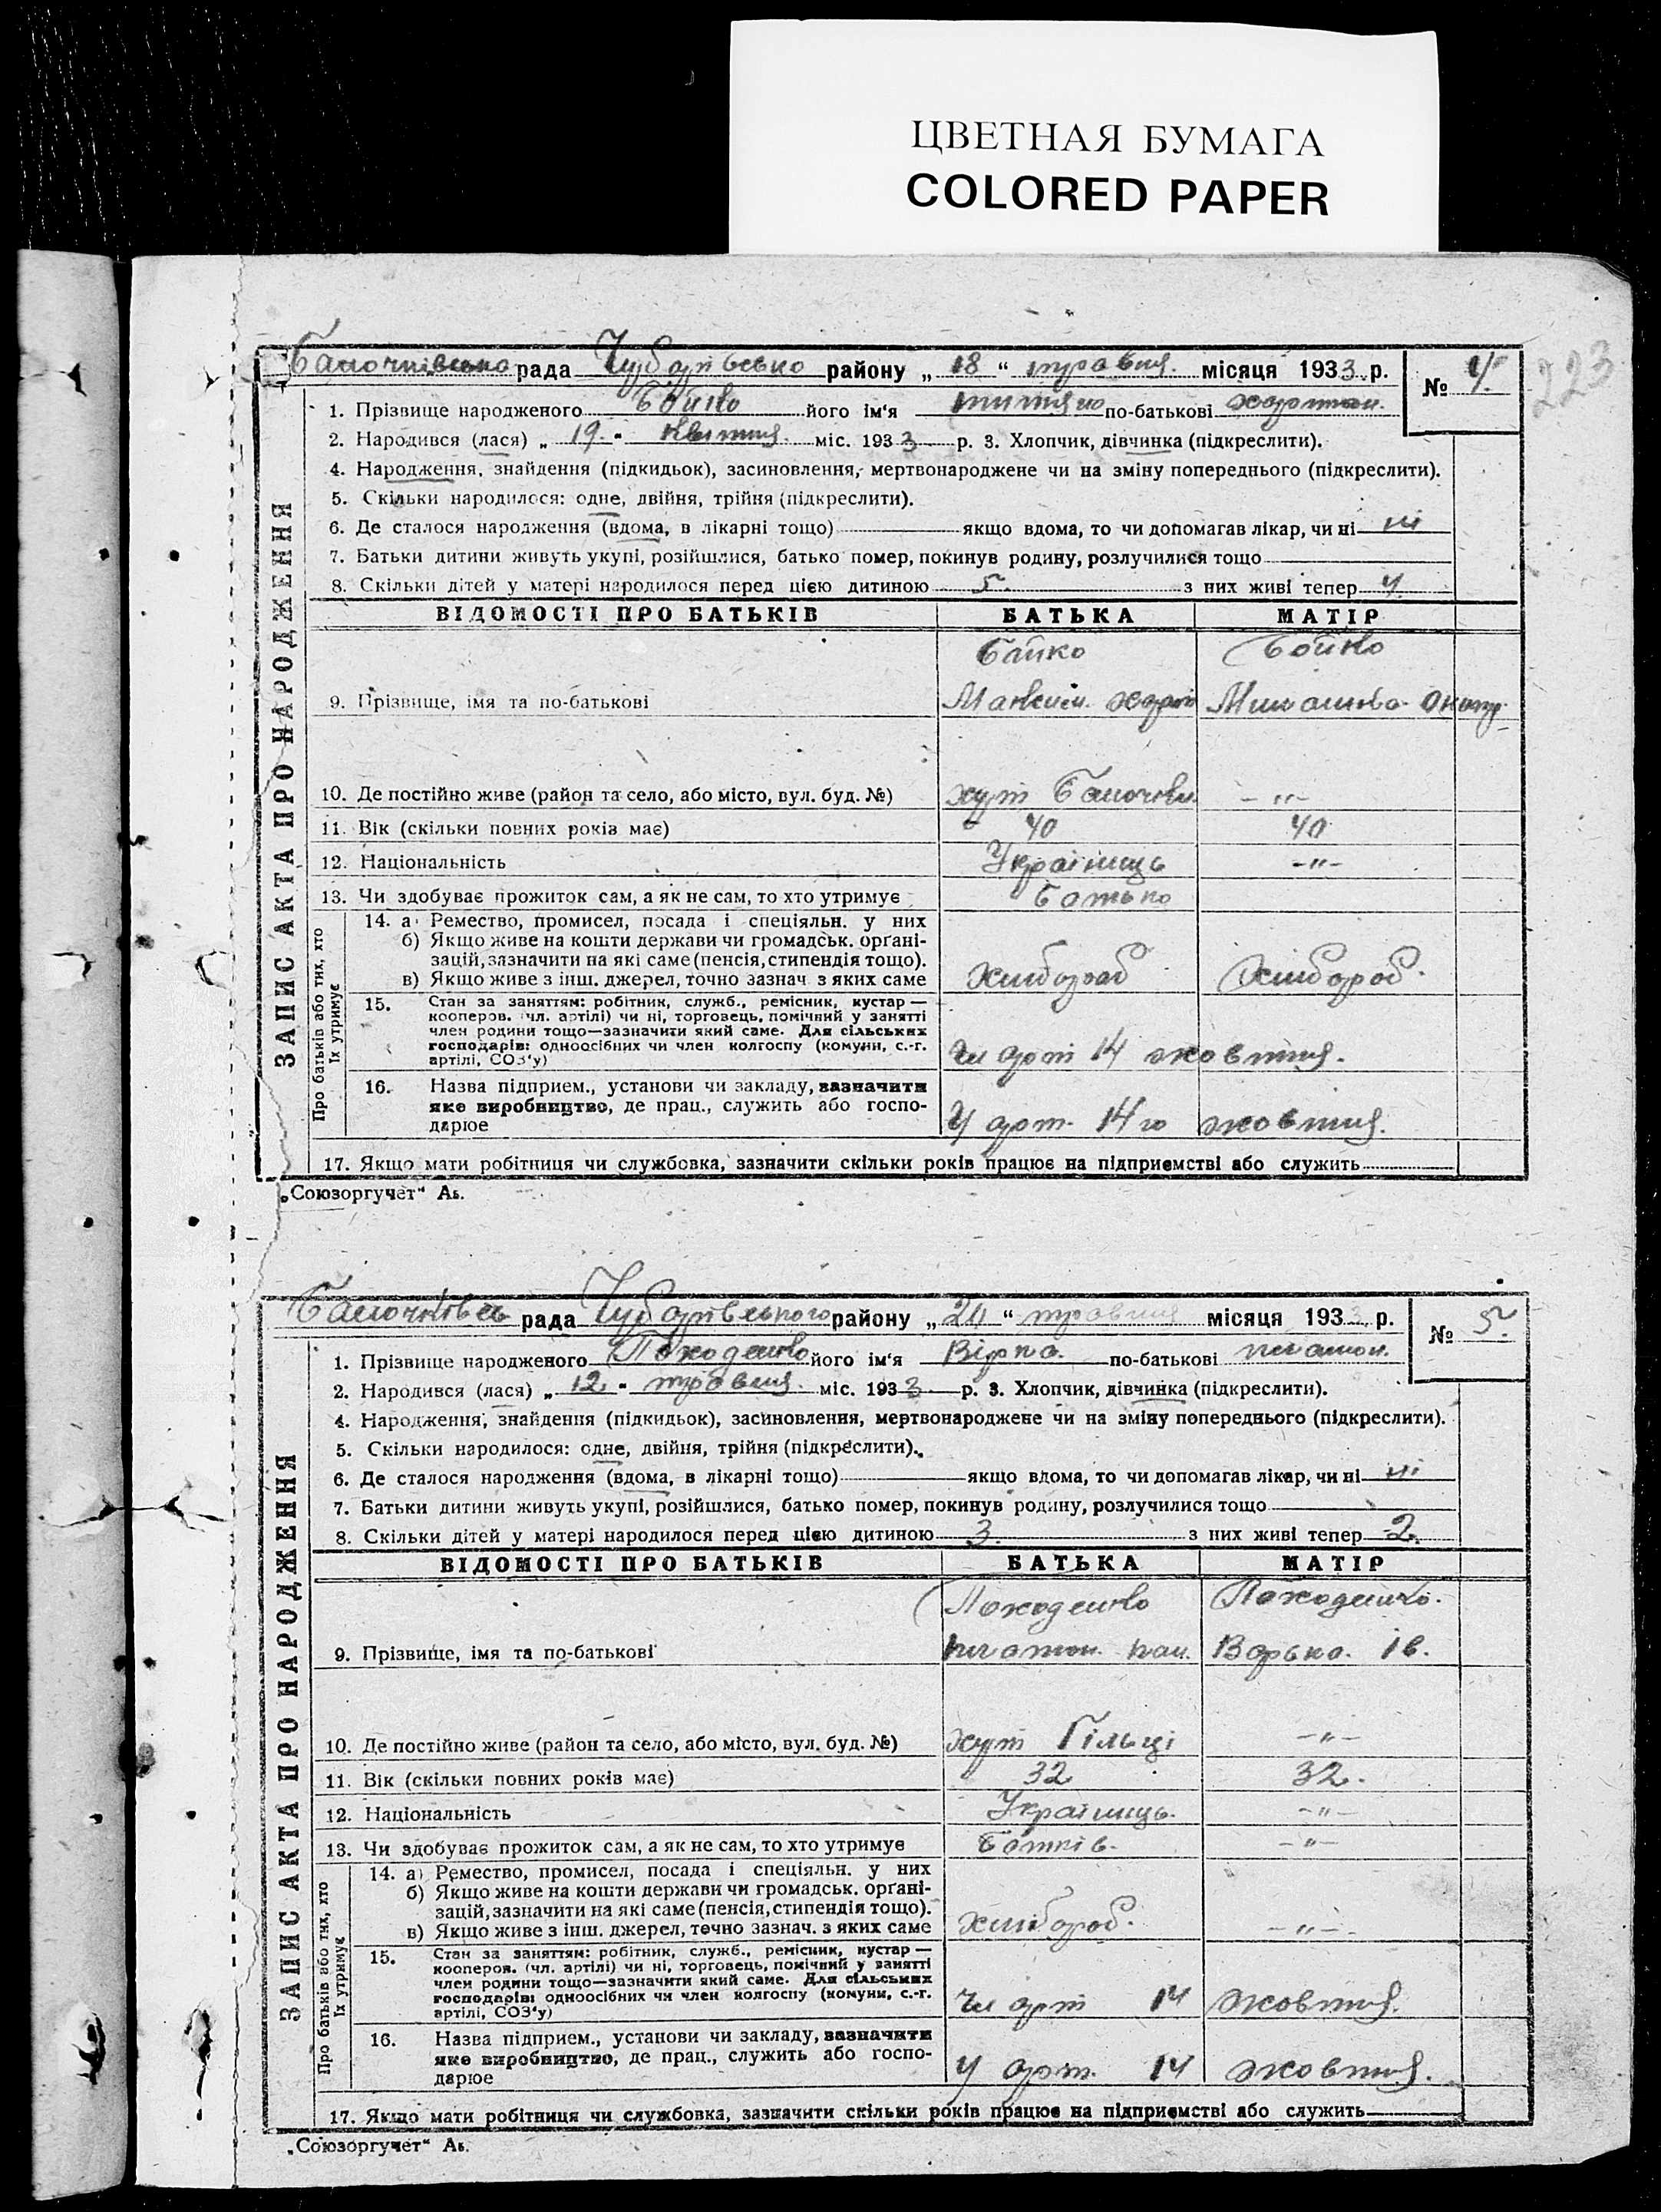 ЦВЕТНАЯ БУМАГА
COLORED PAPER
223
рада Чубарівсько району „ 18 “ травня місяця 1933 р. № 4.
ЗАПИС АКТА ПРО НАРОДЖЕННЯ
1. Прізвище народженого Бойко його ім‘я по-батькові
2. Народився (лася) „ 19 " Квітня міс. 1933 р. 3. Хлопчик, дівчинка (підкреслити).
4. Народження, знайдення (підкидьок), засиновлення, мертвонароджене чи на зміну попереднього (підкреслити).
5. Скільки народилося: одне, двійня, трійня (підкреслити).
6. Де сталося народження (вдома, в лікарні тощо) якщо вдома, то чи допомагав лікар, чи ні ні
7. Батьки дитини живуть укупі, розійшлися, батько помер, покинув родину, розлучилися тощо
8. Скільки дітей у матері народилося перед цією дитиною 5. з них живі тепер 4
ВІДОМОСТІ ПРО БАТЬКІВ БАТЬКА МАТІР
Бойко Бойко
9. Прізвище, імя та по-батькові Максим Харит
10. Де постійно живе (район та село, або місто, вул. буд. №) хут -"-
11. Вік (скільки повних років має) 40 40
12. Національність Українець -"-
13. Чи здобуває прожиток сам, а як не сам, то хто утримує Батько
Про батьків або тих, хто їх утримує
14. а) Ремество, промисел, посада і спеціяльн. у них
б) Якщо живе на кошти держави чи громадськ. орґані-
зацій, зазначити на які саме (пенсія, стипендія тощо).
в) Якщо живе з інш. джерел, точно зазнач. з яких саме Хлібороб Хлібороб.
15. Стан за заняттям: робітник, служб., ремісник, кустар —
кооперов. (чл. артілі) чи ні, торговець, помічний у занятті
член родини тощо—зазначити який саме. Для сільських
господарів: одноосібних чи член колгоспу (комуни, с.-г.
артілі, СОЗ‘у) Чл арт 14 жовтня.
16. Назва підприєм., установи чи закладу, зазначити
яке виробництво, де прац., служить або госпо-
дарює У арт. 14 го жовтня.
17. Якщо мати робітниця чи службовка, зазначити скільки років працює на підприємстві або служить
„Союзоргучет“ Аь.
рада Чубарівського району „ “ травня місяця 1933 р. № 5.
ЗАПИС АКТА ПРО НАРОДЖЕННЯ
1. Прізвище народженого Походенко його ім‘я Вірка по-батькові Платон.
2. Народився (лася) „ 12 " травня міс. 1933 р. 3. Хлопчик, дівчинка (підкреслити).
4. Народження, знайдення (підкидьок), засиновлення, мертвонароджене чи на зміну попереднього (підкреслити).
5. Скільки народилося: одне, двійня, трійня (підкреслити).
6. Де сталося народження (вдома, в лікарні тощо) якщо вдома, то чи допомагав лікар, чи ні ні
7. Батьки дитини живуть укупі, розійшлися, батько помер, покинув родину, розлучилися тощо
8. Скільки дітей у матері народилося перед цією дитиною 3. з них живі тепер 2.
ВІДОМОСТІ ПРО БАТЬКІВ БАТЬКА МАТІР
Походенко Походенко.
9. Прізвище, імя та по-батькові Платон Варька. Ів.
10. Де постійно живе (район та село, або місто, вул. буд. №) хут Гільці -"-
11. Вік (скільки повних років має) 32 32.
12. Національність Українець. -"-
13. Чи здобуває прожиток сам, а як не сам, то хто утримує -"-
Про батьків або тих, хто їх утримує
14. а) Ремество, промисел, посада і спеціяльн. у них
б) Якщо живе на кошти держави чи громадськ. орґані-
зацій, зазначити на які саме (пенсія, стипендія тощо).
в) Якщо живе з інш. джерел, точно зазнач. з яких саме хлібороб. -"-
15. Стан за заняттям: робітник, служб., ремісник, кустар —
кооперов. (чл. артілі) чи ні, торговець, помічний у занятті
член родини тощо—зазначити який саме. Для сільських
господарів: одноосібних чи член колгоспу (комуни, с.-г.
артілі, СОЗ‘у) Чл арт 14 жовтня.
16. Назва підприєм., установи чи закладу, зазначити
яке виробництво, де прац., служить або госпо-
дарює У арт. 14 жовтня.
17. Якщо мати робітниця чи службовка, зазначити скільки років працює на підприємстві або служить
„Союзоргучет“ Аь.